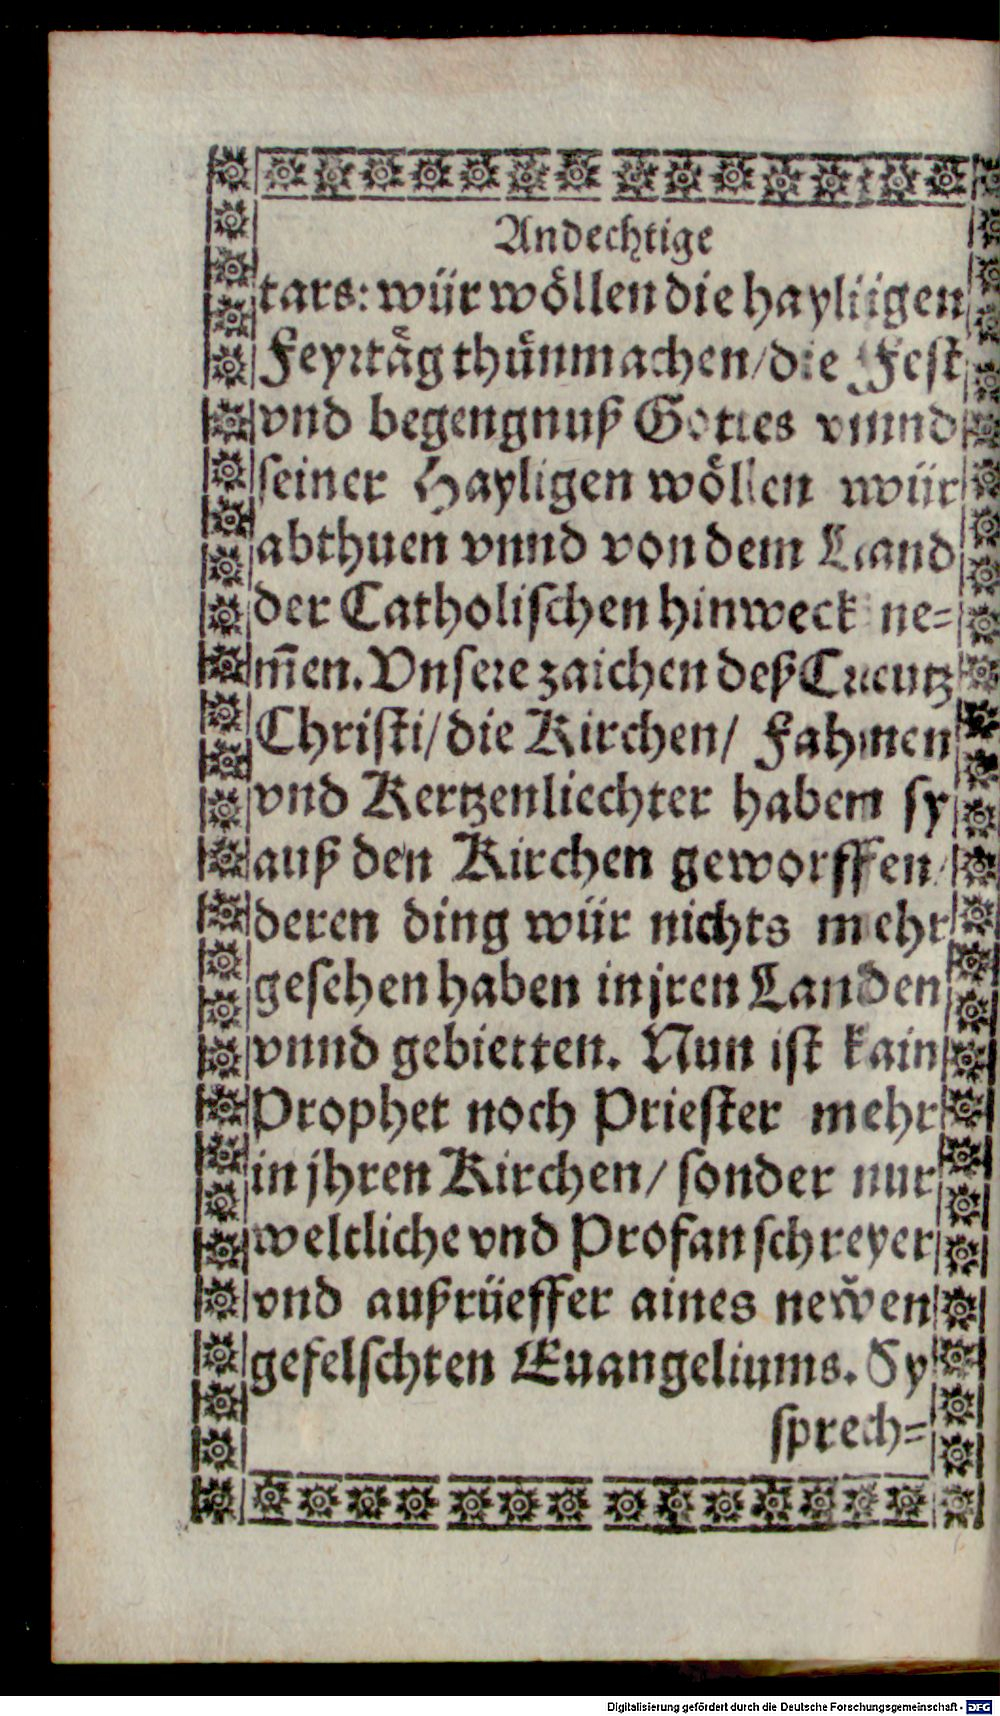 Andechtige
tars: wür wöllen die hayligen
Feyrtäg thünmachen/die Fest
vnd begengnuß Gottes vnnd
seiner Hayligen wöllen wür
abthuen vnnd von dem Land
der Catholischen hinweck ne-
m̃en. Vnsere zaichen deß Creutz
Christi/die Kirchen/ Fahnen
vnd Kertzenliechter haben sy
auß den Kirchen geworffen/
deren ding wür nichts mehr
gesehen haben in jren Landen
vnnd gebietten. Nun ist kain
Prophet noch Priester mehr
in jhren Kirchen/ sonder nur
weltliche vnd Profan schreyer
vnd außrüeffer aines newen
gefelschten Euangeliums. Sy
sprech-
Digitalisierung gefördert durch die Deutsche Forschungsgemeinschaft - DFG